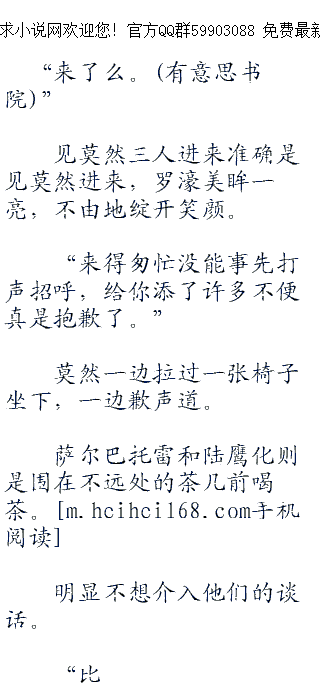 求小说网欢迎您! 官方QQ群59903088 免费最新
“来了么。(有意思书
院)”
见莫然三人进来准确是
见莫然进来，罗濠美眸一
亮，不由地绽开笑颜。
“来得匆忙没能事先打
声招呼，给你添了许多不便
真是抱歉了。”
莫然一边拉过一张椅子
坐下，一边歉声道。
萨尔巴托雷和陆鹰化则
是围在不远处的茶几前喝
茶。[m.hcihci168.com手机
阅读]
明显不想介入他们的谈
话。
“比